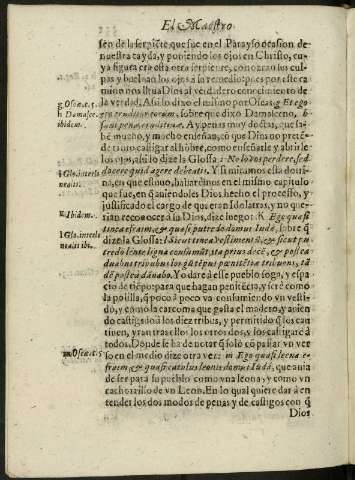 El Maestro
sen de la serpiẽte que fue en el Parayso ocasion de
nuestra cayda, y poniendo los ojos en Christo, cu-
ya figura era esta otra serpiente, conozcan los cul-
pas y buelvan los ojos a la remedio: pues por este ca
mino nos illustra Dios al verdadero conocimiento de
la verdad. Assi lo dixo el mismo por Oseas: g Et ego
eruditor eorum, sobre que dixo Damasceno, h
Ay penas muy doctas, que sa-
bẽ mucho, y mucho enseñan, cõ que Dios no pretẽ-
de tanto castigar al hõbre, como enseñarle y abrir le
los ojos, assi lo dize la Glossa: i Nõ lo vos perdere, sed
docere quid agere debeatis. Y si miramos esta doctri
na, en que estuvo, hallarẽmos en el mismo capitulo
que fue, en q̃ aviendoles Dios hecho el processo, y
justificado el cargo de que eran Idolatras, y no que-
rian reconocer a su Dios, dize luego: K Ego quasi ti
nea efraim, & quasi putredo domui Iuda, sobre q̃
dize la Glossa: l Sicut tinea vestimentũ, & sicut pu-
tredo lente ligna consumit, sta prius docẽ, & postea
duabus tribubus los gũ tẽpus pœnitẽtiæ tribuens, tã
dẽ postea dãnabo. Yo darè a este pueblo soga, y espa
cio de tiẽpo para que hagan penitẽcia, y serè como
la polilla, q̃ poco à poco va consumiendo vn vesti-
do, y como la carcoma que gasta el madero, y assi en
do castigado à los diez tribus, y permitido q̃ los cau
tinen, y tras tras ellos los otros dos, y los castigarè à
todos. Donde se ha de notar q̃ solo cõ passar vn ver
so en el medio dize otra vez: m Ego quasi leæna e-
fraim, & quasi catulus leonis domui Iudà, que avia
de ser para su pueblo como vna leona, y como vn
cachorrillo de vn Leon. En lo qual quiere dar à en
tender los dos modos de penas y de castigos con q̃
Dios
g Oseæ. c. 5.
h Damasce.
ibidem.
i Glo. interli
nearis.
K Ibidem.
l Glo. interli
nearis ibi.
m Oseæ. c. 5